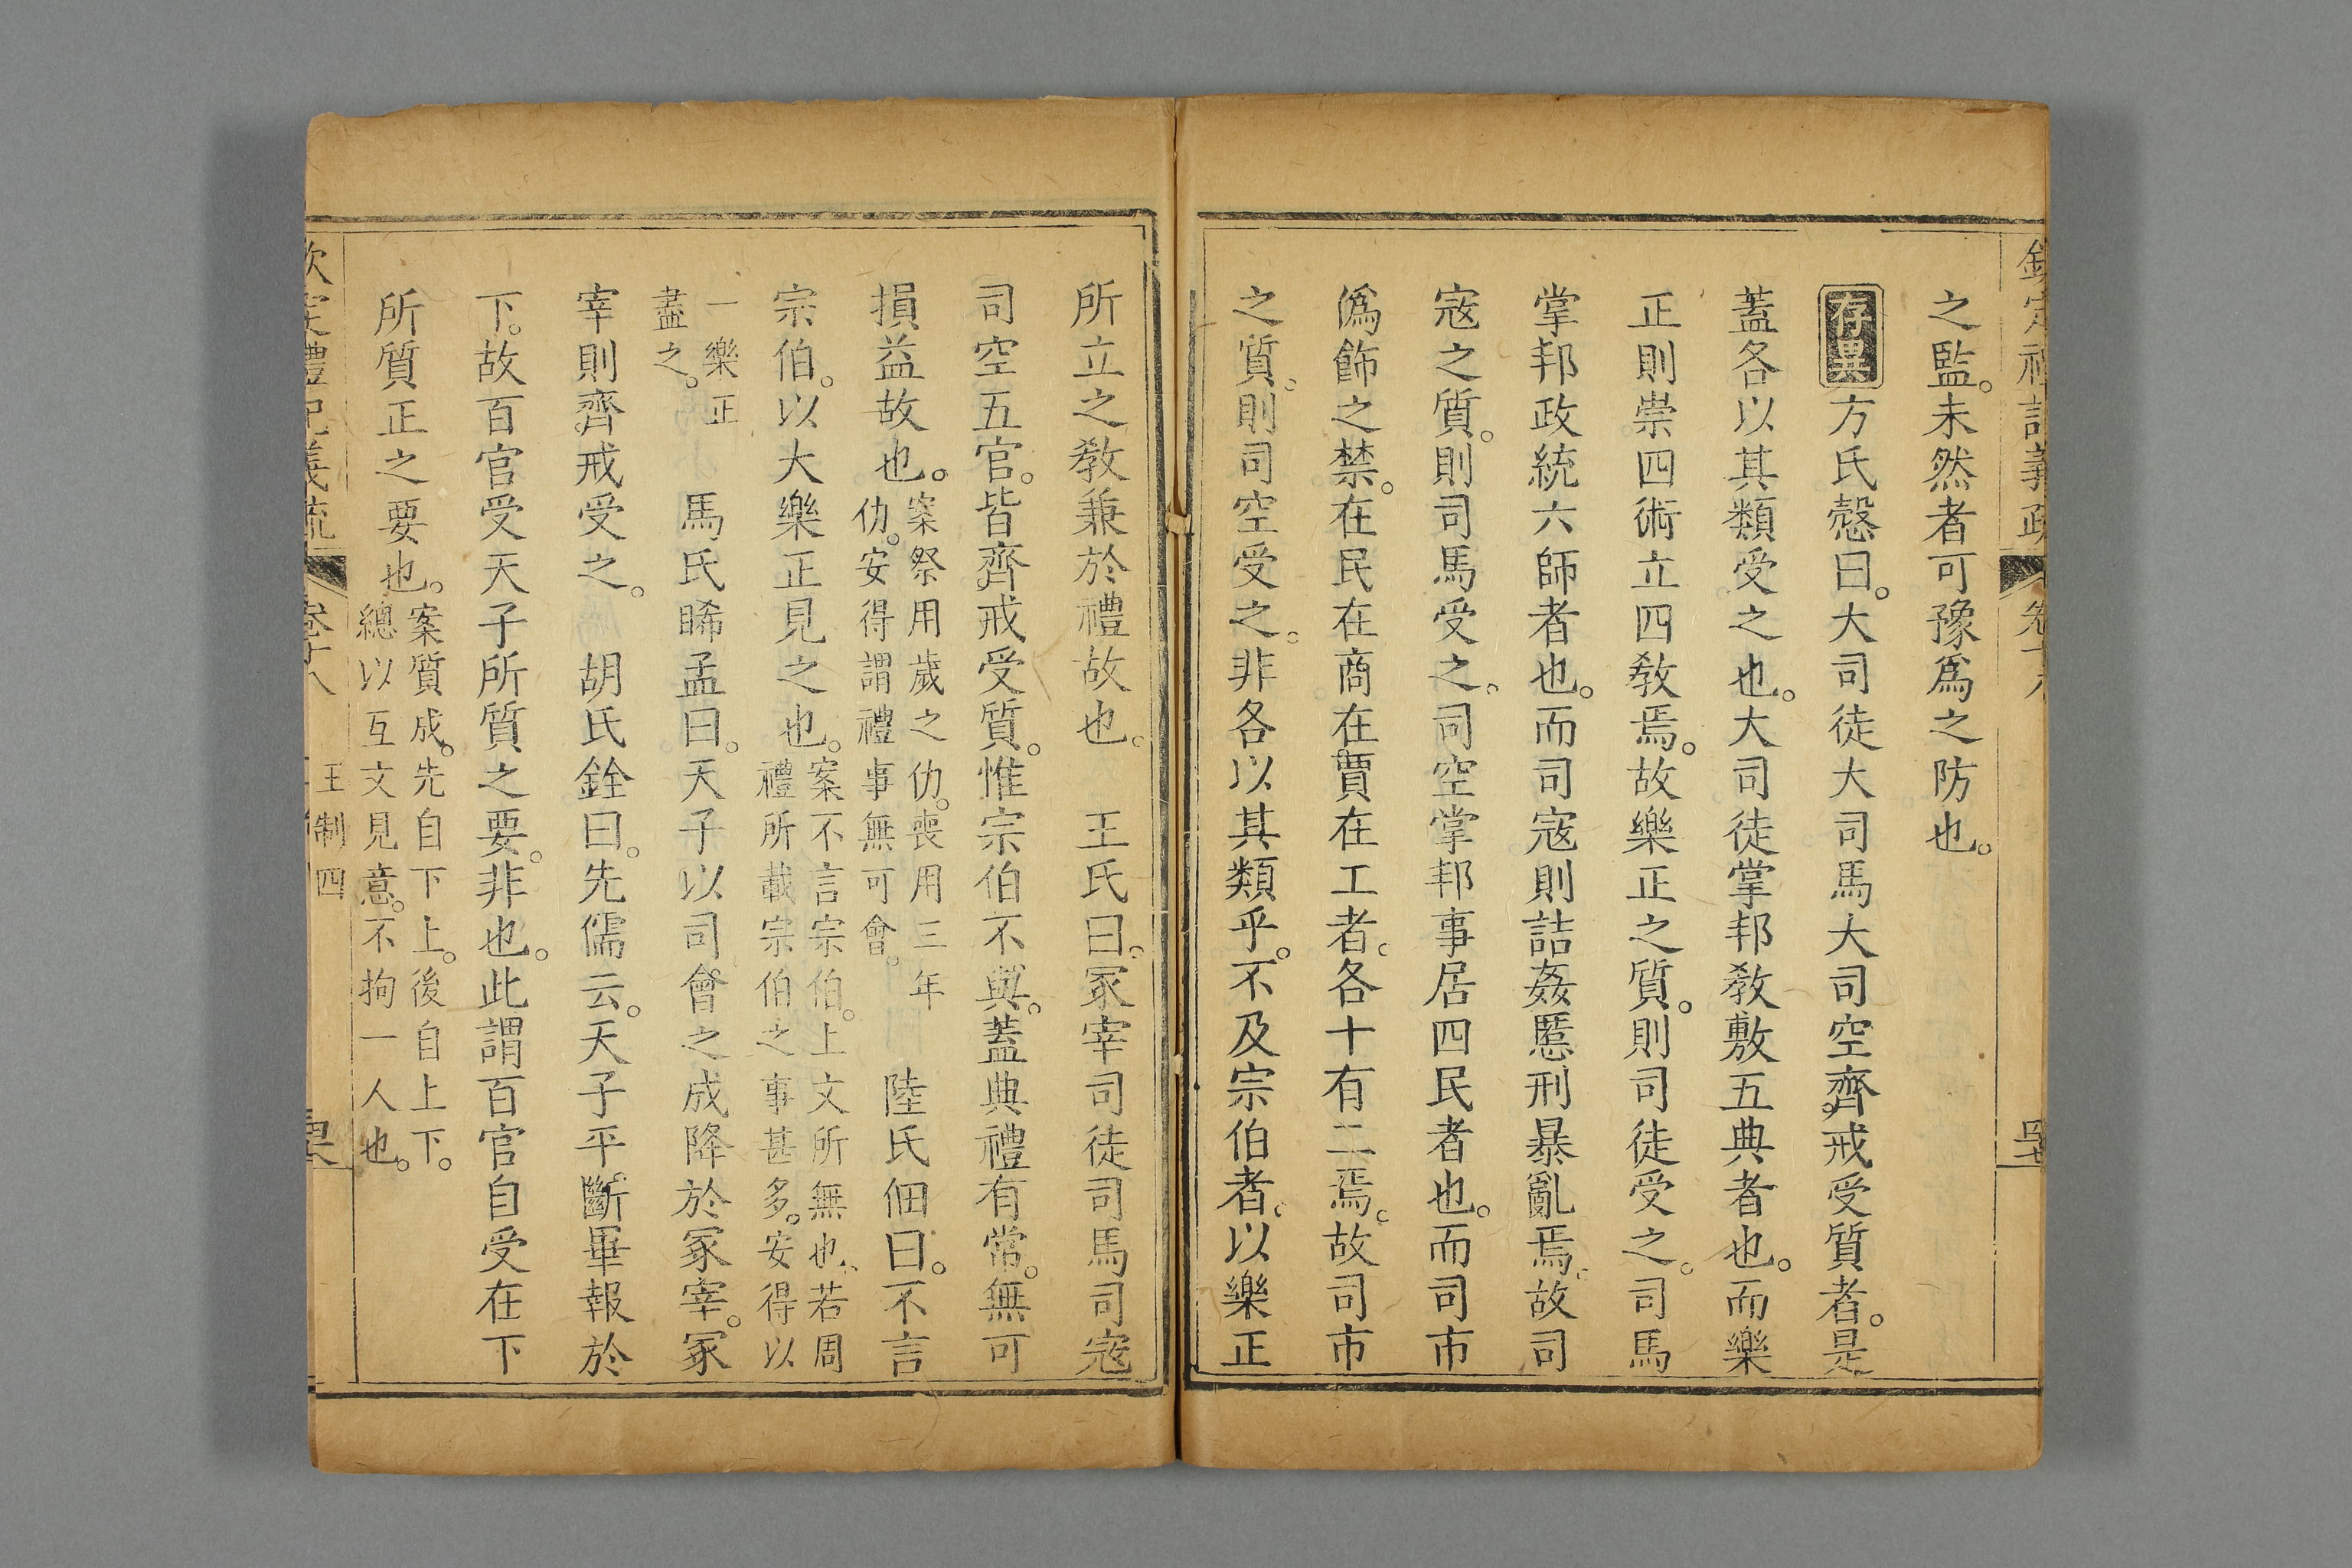 欽定禮記義疏 卷十八
之監。未然者可豫爲之防也。
存異 方氏慤曰。大司徒大司馬大司空齊戒受質者。是
蓋各以其類受之也。大司徒掌邦敎敷五典者也。而樂
正則崇四術立四敎焉。故樂正之質。則司徒受之。司馬
掌邦政統六師者也。而司寇則詰姦慝刑暴亂焉。故司
寇之質。則司馬受之。司空掌邦事居四民者也。而司市
僞飾之禁。在民在商在賈在工者。各十有二焉。故司市
之質。則司空受之。非各以其類乎。不及宗伯者。以樂正
所立之敎兼於禮故也。 王氏曰。冢宰司徒司馬司寇
司空五官。皆齊戒受質。惟宗伯不與。蓋典禮有常。無可
損益故也。案祭用歲之仂。喪用三年
仂。安得謂禮事無可會。 陸氏佃曰。不言
宗伯。以大樂正見之也。案不言宗伯。上文所無也。若周
禮所載宗伯之事甚多。安得以
一樂正
盡之。 馬氏睎孟曰。天子以司會之成降於冢宰。冢
宰則齊戒受之。 胡氏銓曰。先儒云。天子平斷畢報於
下。故百官受天子所質之要。非也。此謂百官自受在下
所質正之要也。案質成。先自下上。後自上下。
總以互文見意。不拘一人也。
欽定禮記義疏 卷十八 王制四